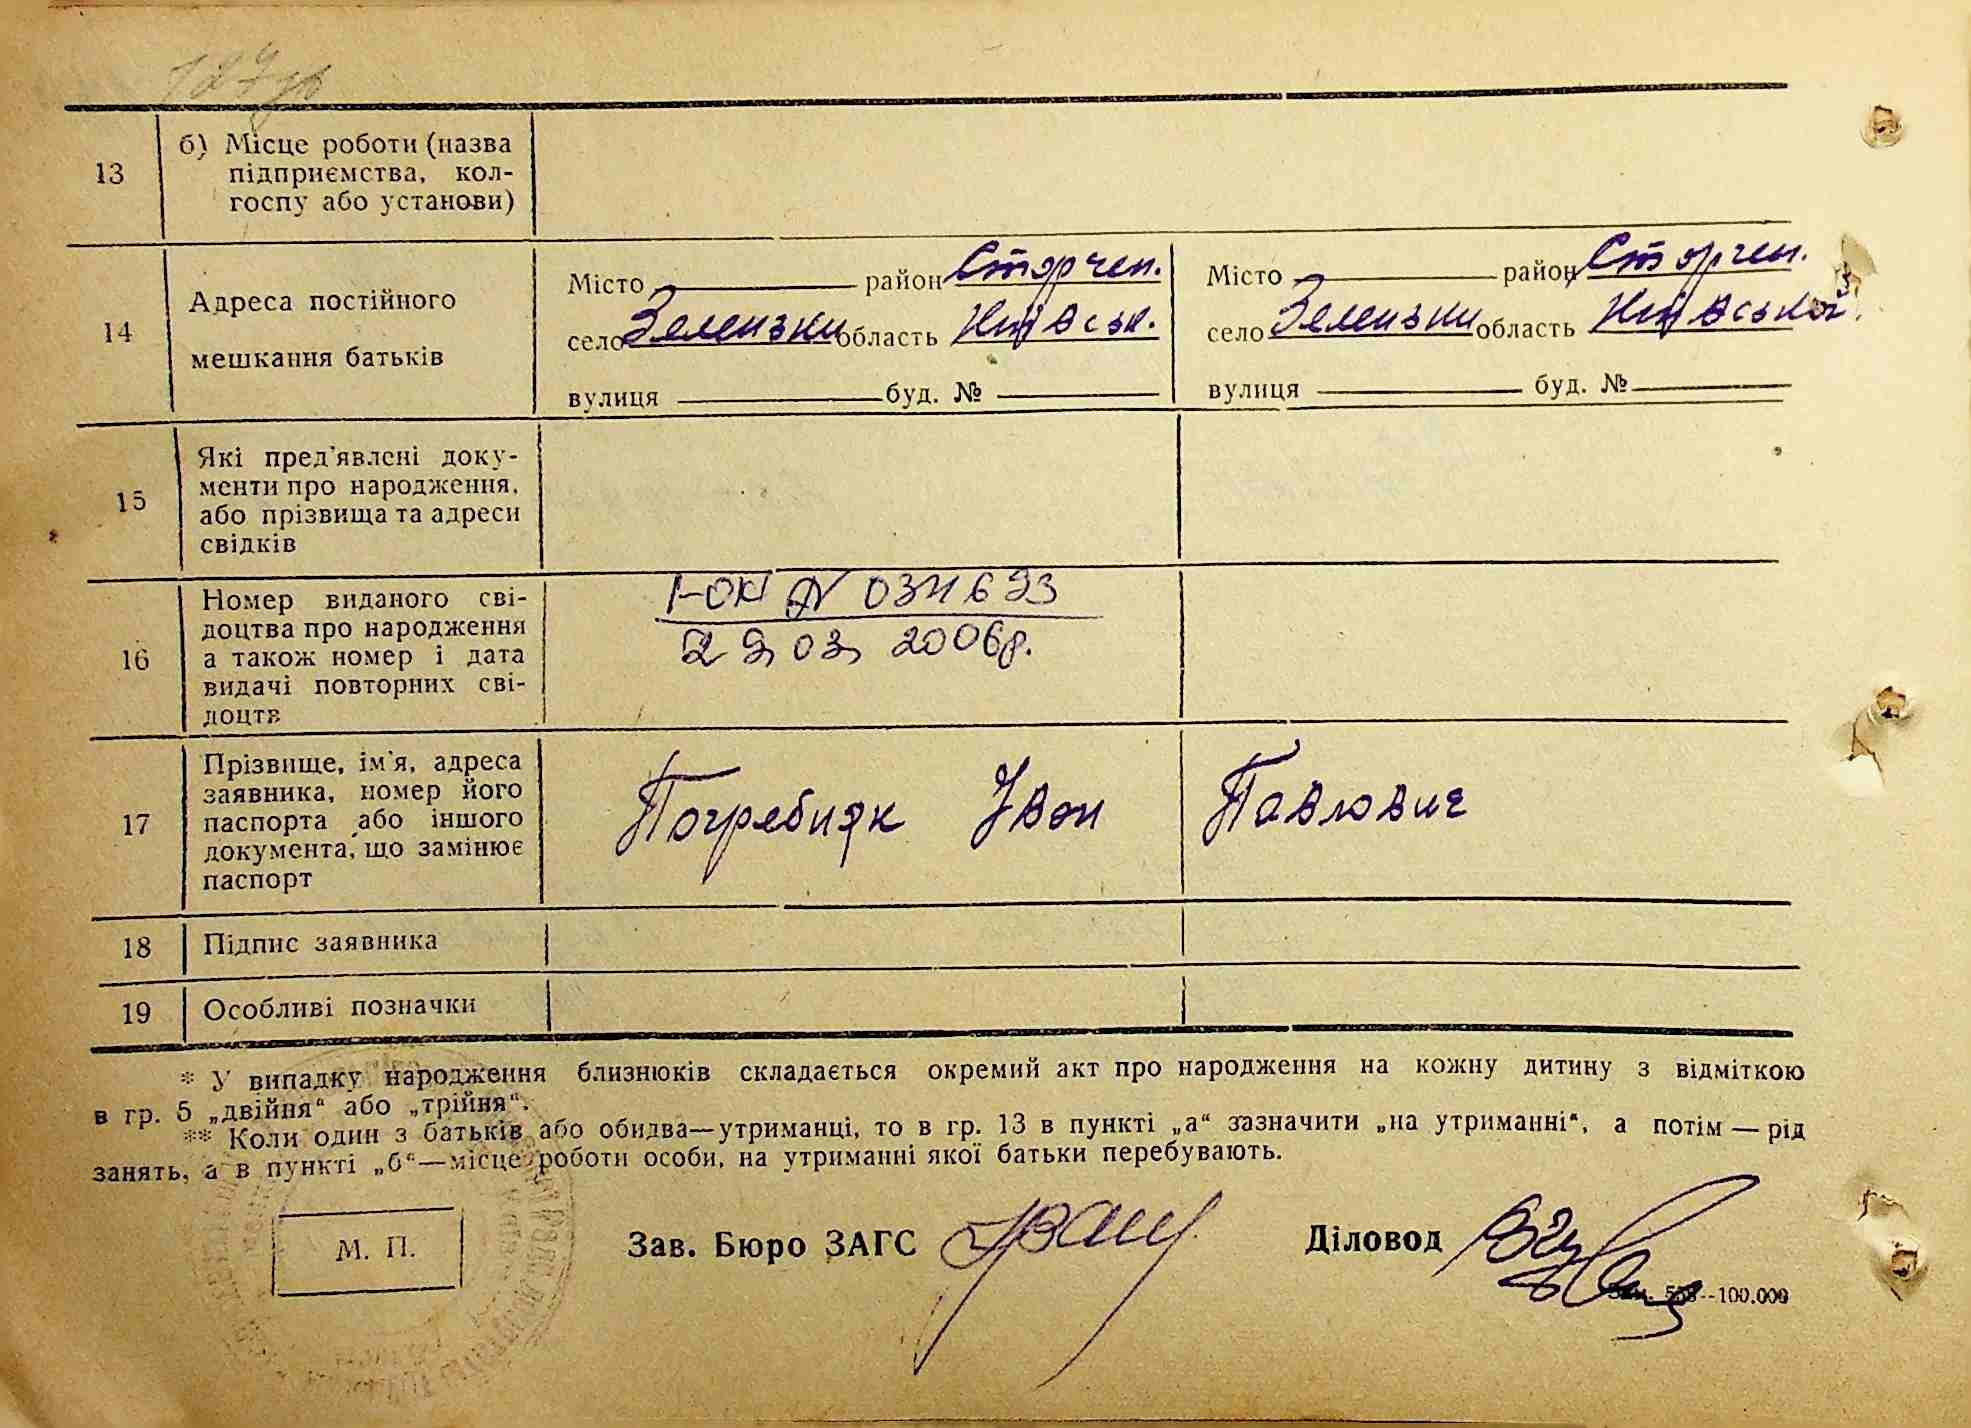 127
13
б) Місце роботи (назва
підприємства, кол-
госпу або установи)
14
Адреса постійного
мешкання батьків
Місто район Сторчен.
село Зеленьки область Київськ.
вулиця буд. №
Місто район Сторчен.
село Зеленьки область Київської
вулиця буд. №
15
Які пред'явлені доку-
менти про народження,
або прізвища та адреси
свідків
16
Номер виданого сві-
доцтва про народження
а також номер і дата
видачі повторних сві-
доцтв
І-ОК № 034693
29, 03, 2006р.
17
Прізвище, ім'я, адреса
заявника, номер його
паспорта або іншого
документа, що замінює
паспорт
Погребняк Іван Павлович
18
Підпис заявника
19
Особливі позначки
* У випадку народження близнюків складається окремий акт про народження на кожну дитину з відміткою
в гр. 5 „двійня“ або „трійня“.
** Коли один з батьків або обидва—утриманці, то в гр. 13 в пункті „а“ зазначити „на утриманні“, а потім — рід
занять, а в пункті „б“—місце роботи особи, на утриманні якої батьки перебувають.
М. П.
Зав. Бюро ЗАГС
Діловод
100.000